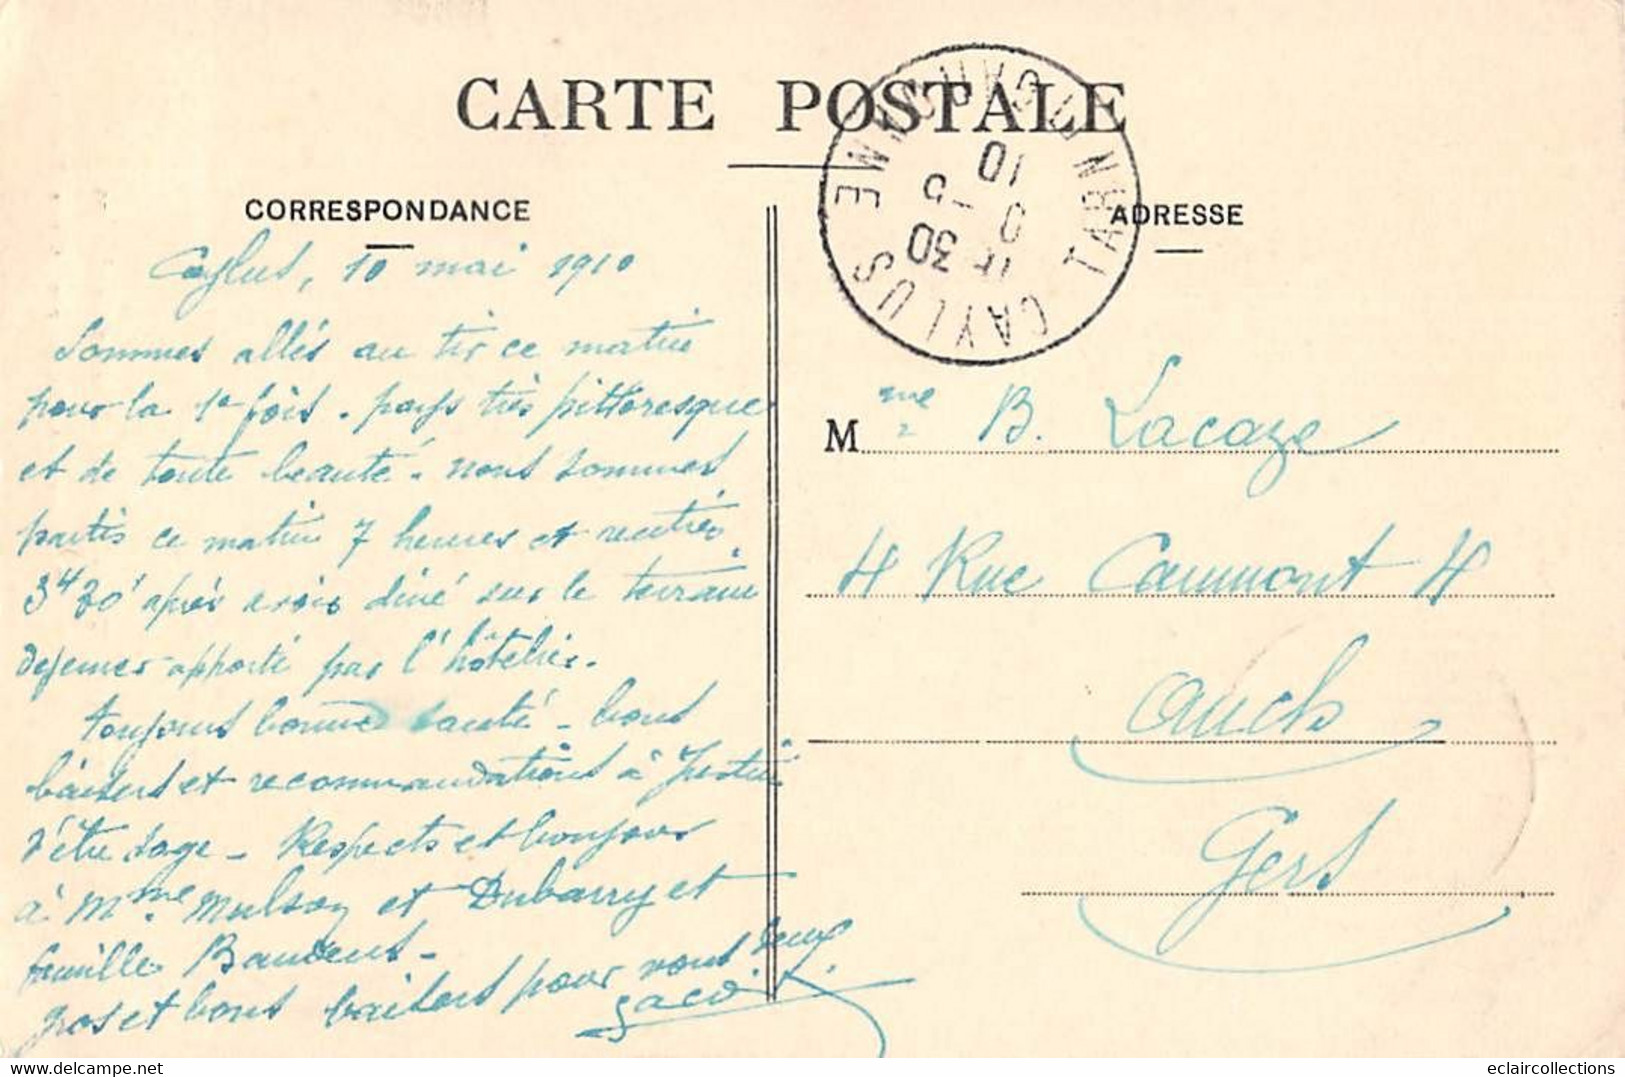 CARTE POSTALE
CORRESPONDANCE
Caylus, 10 mai 1910
Sommes allés au tir ce matin
pour la 1e fois. pays très pittoresque
et de toute beauté. nous sommes
partis ce matin 7 heures et rentrés
3h30' après avoir diné sur le terrain
dejeuner apporté par l'hôtelier.
toujours bonne santé - bons
baisers et recommandations à Justin
d'être sage - Respects et bonjour
à Mme. Mulson et Dubarry et
famille Baudens -
gros et bons baisers pour vous deux
CAYLUS TARN ET GARONNE
30
5
10
ADRESSE
Mme B. Lacaze
4 Rue Caumont 4
Auch
Gers
eclaircollections